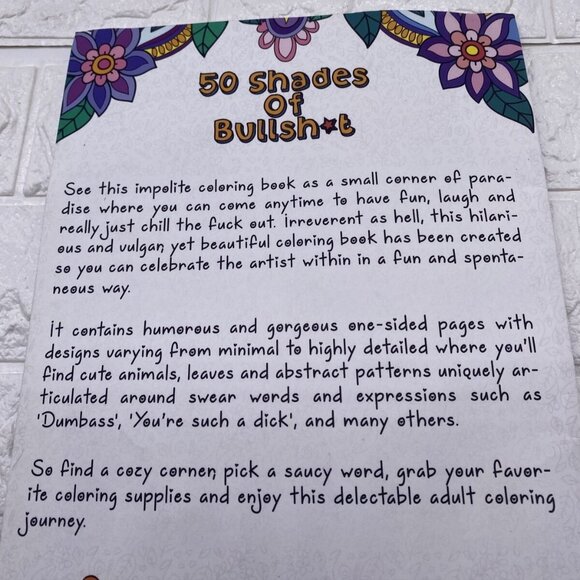 50 Shades
Of
Bullsh★t
See this impolite coloring book as a small corner of para-
dise where you can come anytime to have fun, laugh and
really just chill the fuck out. Irreverent as hell, this hilari-
ous and vulgar, yet beautiful coloring book has been created
so you can celebrate the artist within in a fun and sponta-
neous way.
It contains humorous and gorgeous one-sided pages with
designs varying from minimal to highly detailed where you'll
find cute animals, leaves and abstract patterns uniquely ar-
ticulated around swear words and expressions such as
'Dumbass', 'You're such a dick', and many others.
So find a cozy corner, pick a saucy word, grab your favor-
ite coloring supplies and enjoy this delectable adult coloring
journey.